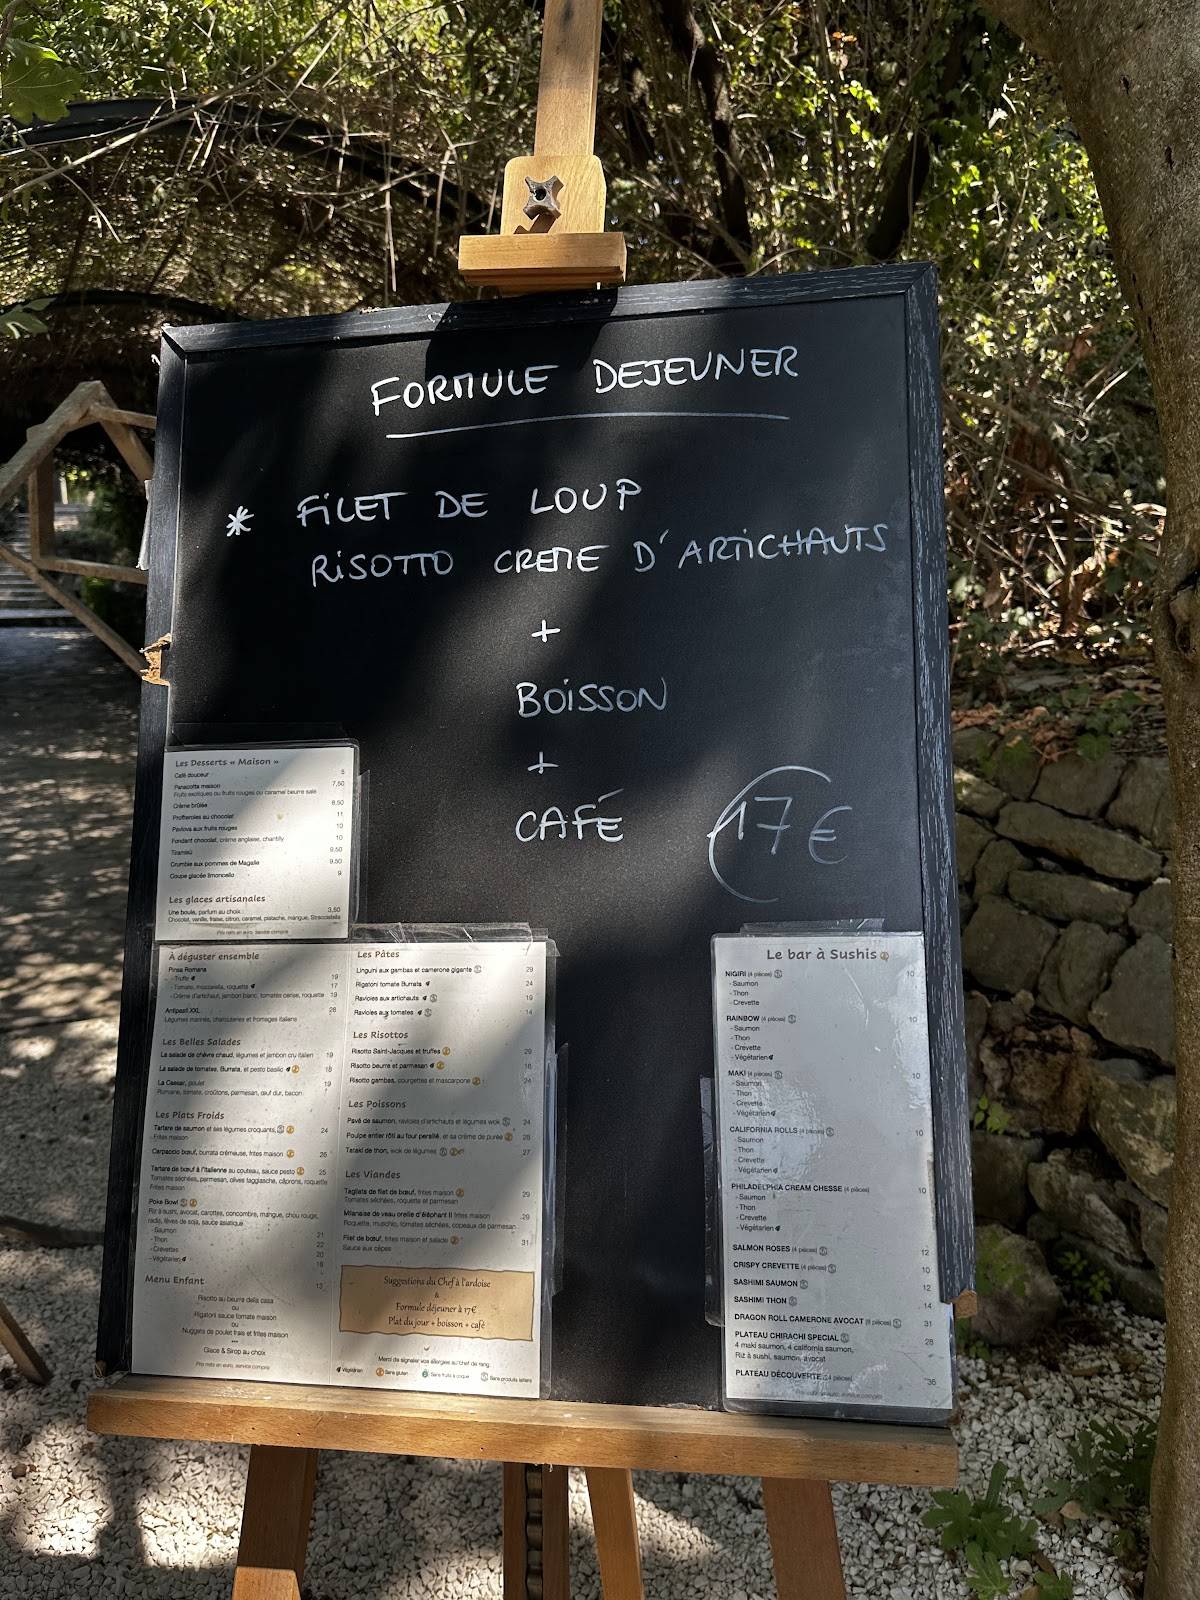 FORMULE DEJEUNER
* FILET DE LOUP
RISOTTO CREME D'ARTICHAUTS
+
BOISSON
+
CAFÉ
17€
Les Desserts « Maison »
Café douceur 5
Panacotta maison 7,50
Fruits exotiques ou fruits rouges ou caramel beurre salé
Crème brûlée 8,50
Profiteroles au chocolat 11
Pavlova aux fruits rouges 10
Fondant chocolat, crème anglaise, chantilly 10
Tiramisù 9,50
Crumble aux pommes de Magalie 9,50
Coupe glacée limoncello 9
Les glaces artisanales
Une boule, parfum au choix : 3,50
Chocolat, vanille, fraise, citron, caramel, pistache, mangue, Stracciatella
Prix nets en euro, service compris
À déguster ensemble
Pinsa Romana
- Truffe 19
- Tomate, mozzarella, roquette 17
- Crème d'artichaut, jambon blanc, tomates cerise, roquette 19
Antipasti XXL 28
Légumes marinés, charcuteries et fromages italiens
Les Belles Salades
La salade de chèvre chaud, légumes et jambon cru italien 19
La salade de tomates, Burrata, et pesto basilic 18
La Caesar, poulet 19
Romaine, tomate, croûtons, parmesan, œuf dur, bacon
Les Plats Froids
Tartare de saumon et ses légumes croquants, 24
Frites maison
Carpaccio bœuf, burrata crémeuse, frites maison 26
Tartare de bœuf à l'italienne au couteau, sauce pesto 25
Tomates séchées, parmesan, olives taggiasche, câprons, roquette
Frites maison
Poke Bowl
Riz à sushi, avocat, carottes, concombre, mangue, chou rouge,
radis, fèves de soja, sauce asiatique
- Saumon 21
- Thon 22
- Crevettes 20
- Végétarien 18
Menu Enfant 13
Risotto au beurre della casa
ou
Rigatoni sauce tomate maison
ou
Nuggets de poulet frais et frites maison
***
Glace & Sirop au choix
Prix nets en euro, service compris
Les Pâtes
Linguini aux gambas et camerone gigante 29
Rigatoni tomate Burrata 24
Ravioles aux artichauts 19
Ravioles aux tomates 14
Les Risottos
Risotto Saint-Jacques et truffes 29
Risotto beurre et parmesan 18
Risotto gambas, courgettes et mascarpone 24
Les Poissons
Pavé de saumon, ravioles d'artichauts et légumes wok 24
Poulpe entier rôti au four persillé, et sa crème de purée 28
Tataki de thon, wok de légumes 27
Les Viandes
Tagliata de filet de bœuf, frites maison 29
Tomates séchées, roquette et parmesan
Milanaise de veau oreille d'éléphant !! frites maison 29
Roquette, tomates séchées, copeaux de parmesan
Filet de bœuf, frites maison et salade 31
Sauce aux cèpes
Suggestions du Chef à l'ardoise
&
Formule déjeuner à 17€
Plat du jour + boisson + café
Merci de signaler vos allergies au chef de rang.
Végétarien Sans gluten Sans fruits à coque Sans produits laitiers
Le bar à Sushis
NIGIRI (4 pièces) 10
- Saumon
- Thon
- Crevette
RAINBOW (4 pièces) 10
- Saumon
- Thon
- Crevette
- Végétarien
MAKI (4 pièces) 10
- Saumon
- Thon
- Crevette
- Végétarien
CALIFORNIA ROLLS (4 pièces) 10
- Saumon
- Thon
- Crevette
- Végétarien
PHILADELPHIA CREAM CHESSE (4 pièces) 10
- Saumon
- Thon
- Crevette
- Végétarien
SALMON ROSES (4 pièces) 12
CRISPY CREVETTE (4 pièces) 10
SASHIMI SAUMON 12
SASHIMI THON 14
DRAGON ROLL CAMERONE AVOCAT (8 pièces) 31
PLATEAU CHIRACHI SPECIAL 28
4 maki saumon, 4 california saumon,
Riz à sushi, saumon, avocat
PLATEAU DÉCOUVERTE 36